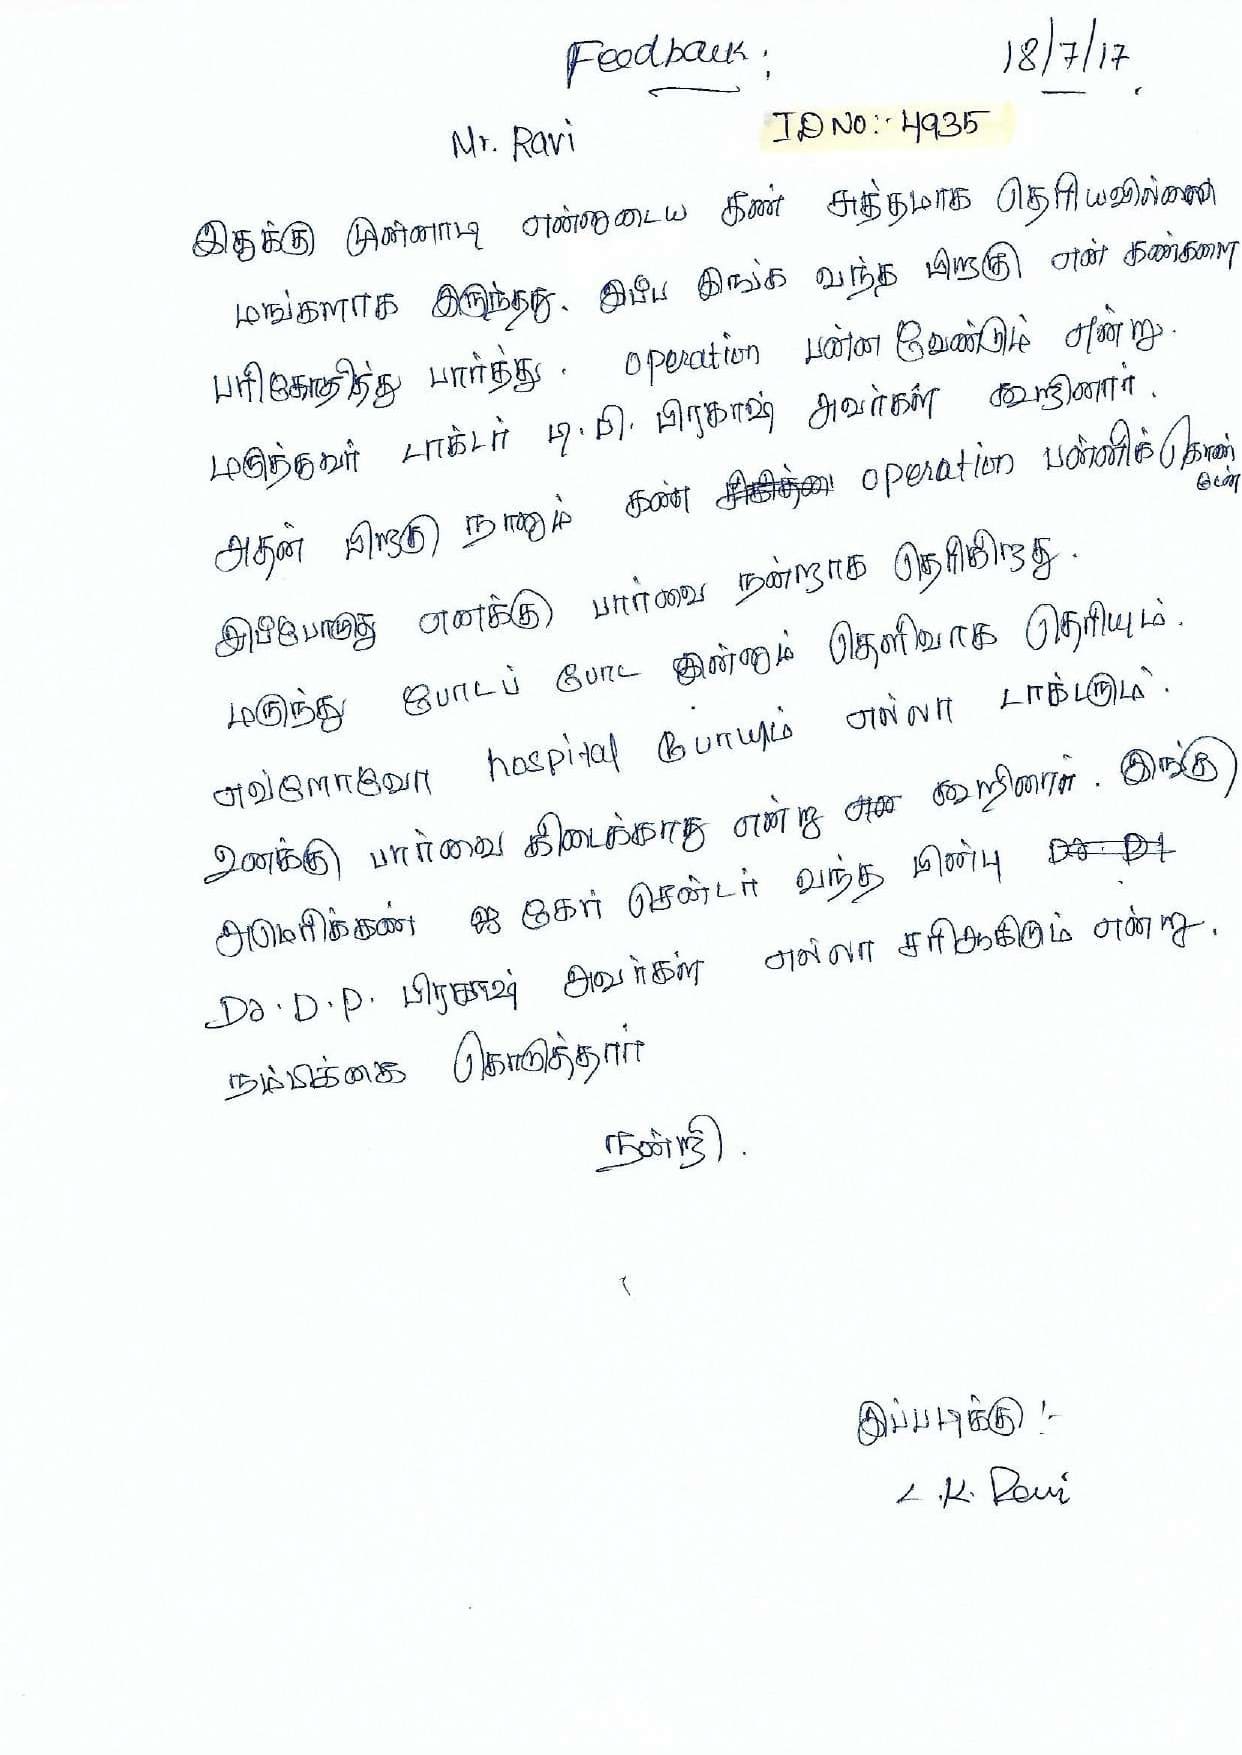 Feedback:
18/7/17
Mr. Ravi
ID NO:- 4935
இதுக்கு முன்னாடி என்னுடைய கண் சுத்தமாக தெரியவில்லை
மங்களாக இருந்தது. இப்ப இங்க வந்த பிறகு என் கண்களை
பரிசோதித்து பார்த்து. operation பன்ன வேண்டும் என்று.
மருத்துவர் டாக்டர் டி.பி. பிரகாஷ் அவர்கள் கூறினார்.
அதன் பிறகு நானும் கண் operation பன்னிக்கொண்
டேன்
இப்பொழுது எனக்கு பார்வை நன்றாக தெரிகிறது.
மருந்து போடப் போட இன்னும் தெளிவாக தெரியும்.
எவ்ளோவோ hospital போயும் எல்லா டாக்டரும்.
உனக்கு பார்வை கிடைக்காது என்று கூறினார். இங்கு
அமெரிக்கண் ஐ கேர் சென்டர் வந்த பின்பு
Dr. D.P. பிரகாஷ் அவர்கள் எல்லா சரிஆகிரும் என்று.
நம்பிக்கை கொடுத்தார்
நன்றி.
இப்படிக்கு:-
L.K. Ravi